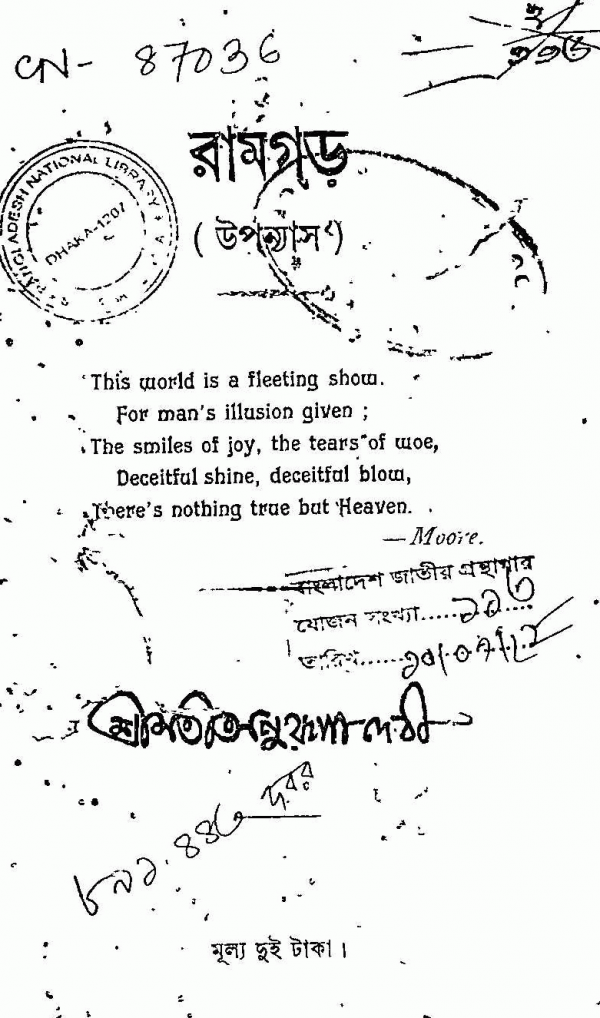 CN- 87036
রামগড়
BANGLADESH NATIONAL LIBRARY
DHAKA-1207
( উপন্যাস )
This world is a fleeting show.
For man's illusion given ;
The smiles of joy, the tears of woe,
Deceitful shine, deceitful blow,
There's nothing true but Heaven.
—Moore.
বাংলাদেশ জাতীয় গ্রন্থাগার
যোজন সংখ্যা......
তারিখ......
শ্রীমতী অনুরূপা দেবী
মূল্য দুই টাকা।